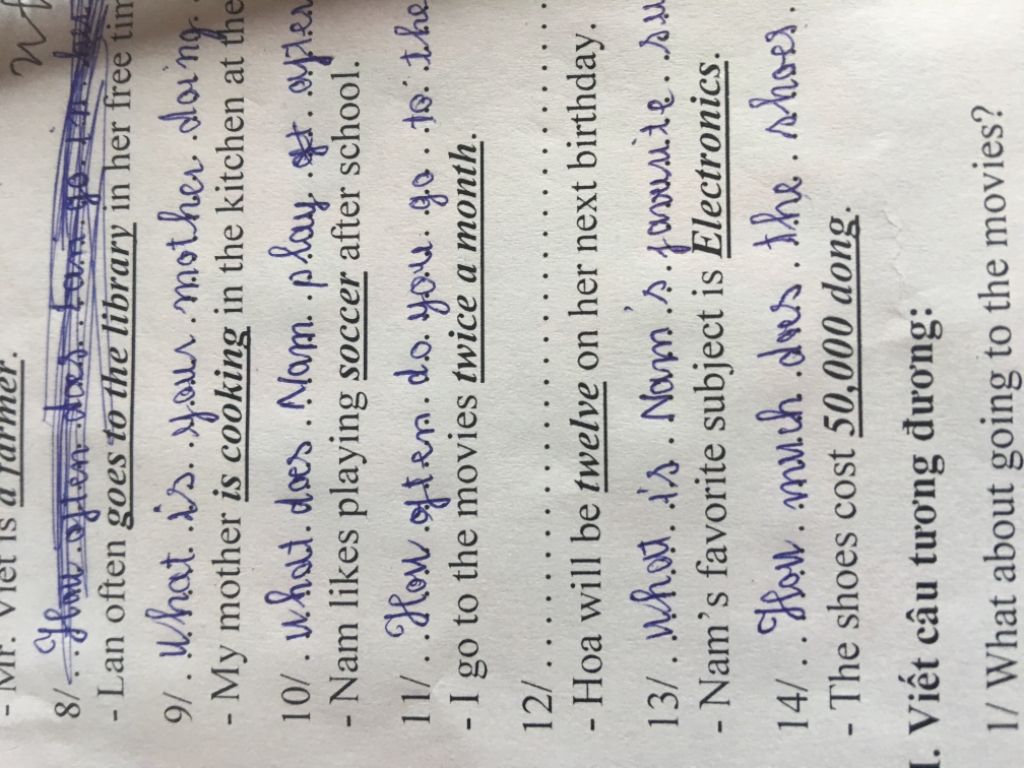 - Mr. Viet is a farmer.
8/. How often does Lan go
- Lan often goes to the library in her free tim
9/. what is your mother doing.
- My mother is cooking in the kitchen at the
10/. what does Nam play after
- Nam likes playing soccer after school.
11/. How often do you go to the
- I go to the movies twice a month.
12/.............................................
- Hoa will be twelve on her next birthday.
13/. what is Nam's favouite su
- Nam's favorite subject is Electronics.
14/. How much does the shoes.
- The shoes cost 50,000 dong.
I. Viết câu tương đương:
1/ What about going to the movies?